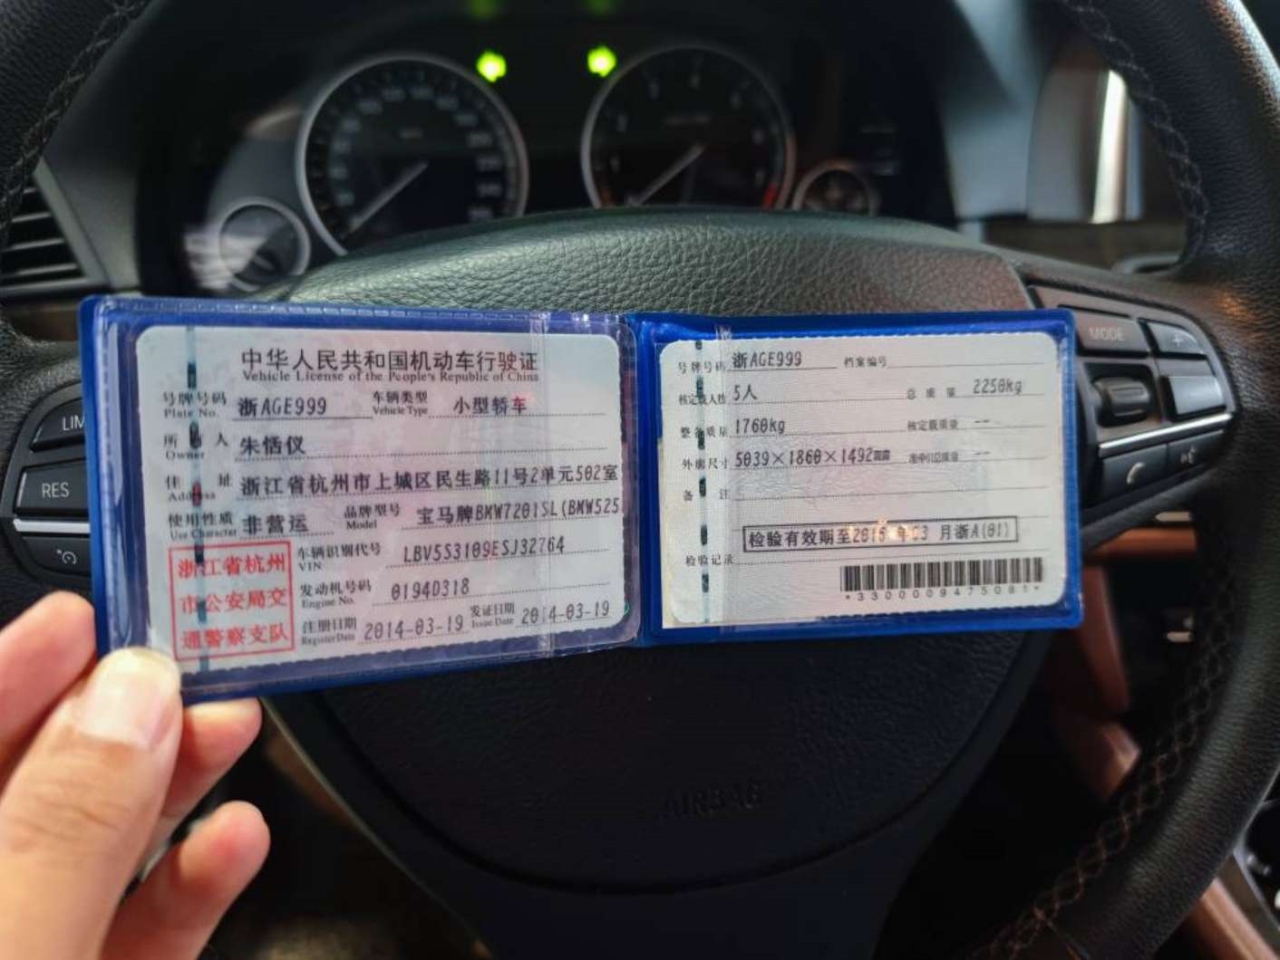 中华人民共和国机动车行驶证
Vehicle License of the People's Republic of China
号牌号码 浙AGE999 车辆类型 小型轿车
Plate No. Vehicle Type
所 人 朱恬仪
Owner
住 址 浙江省杭州市上城区民生路11号2单元502室
Address
使用性质 非营运 品牌型号 宝马牌BMW7201SL(BMW525
Use Character Model
浙江省杭州
市公安局交
通警察支队
车辆识别代号 LBV5S3109ESJ32764
VIN
发动机号码 0194D318
Engine No.
注册日期 2014-03-19 发证日期 2014-03-19
Register Date Issue Date
号牌号码 浙AGE999 档案编号
核定载人数 5人 总质量 2250kg
整备质量 1760kg 核定载质量 --
外廓尺寸 5039×1860×1492 --
备 注
检验有效期至2016年03月浙A(01)
检验记录
*3300009475081*
LIM
RES
MODE
+
AIRBAG